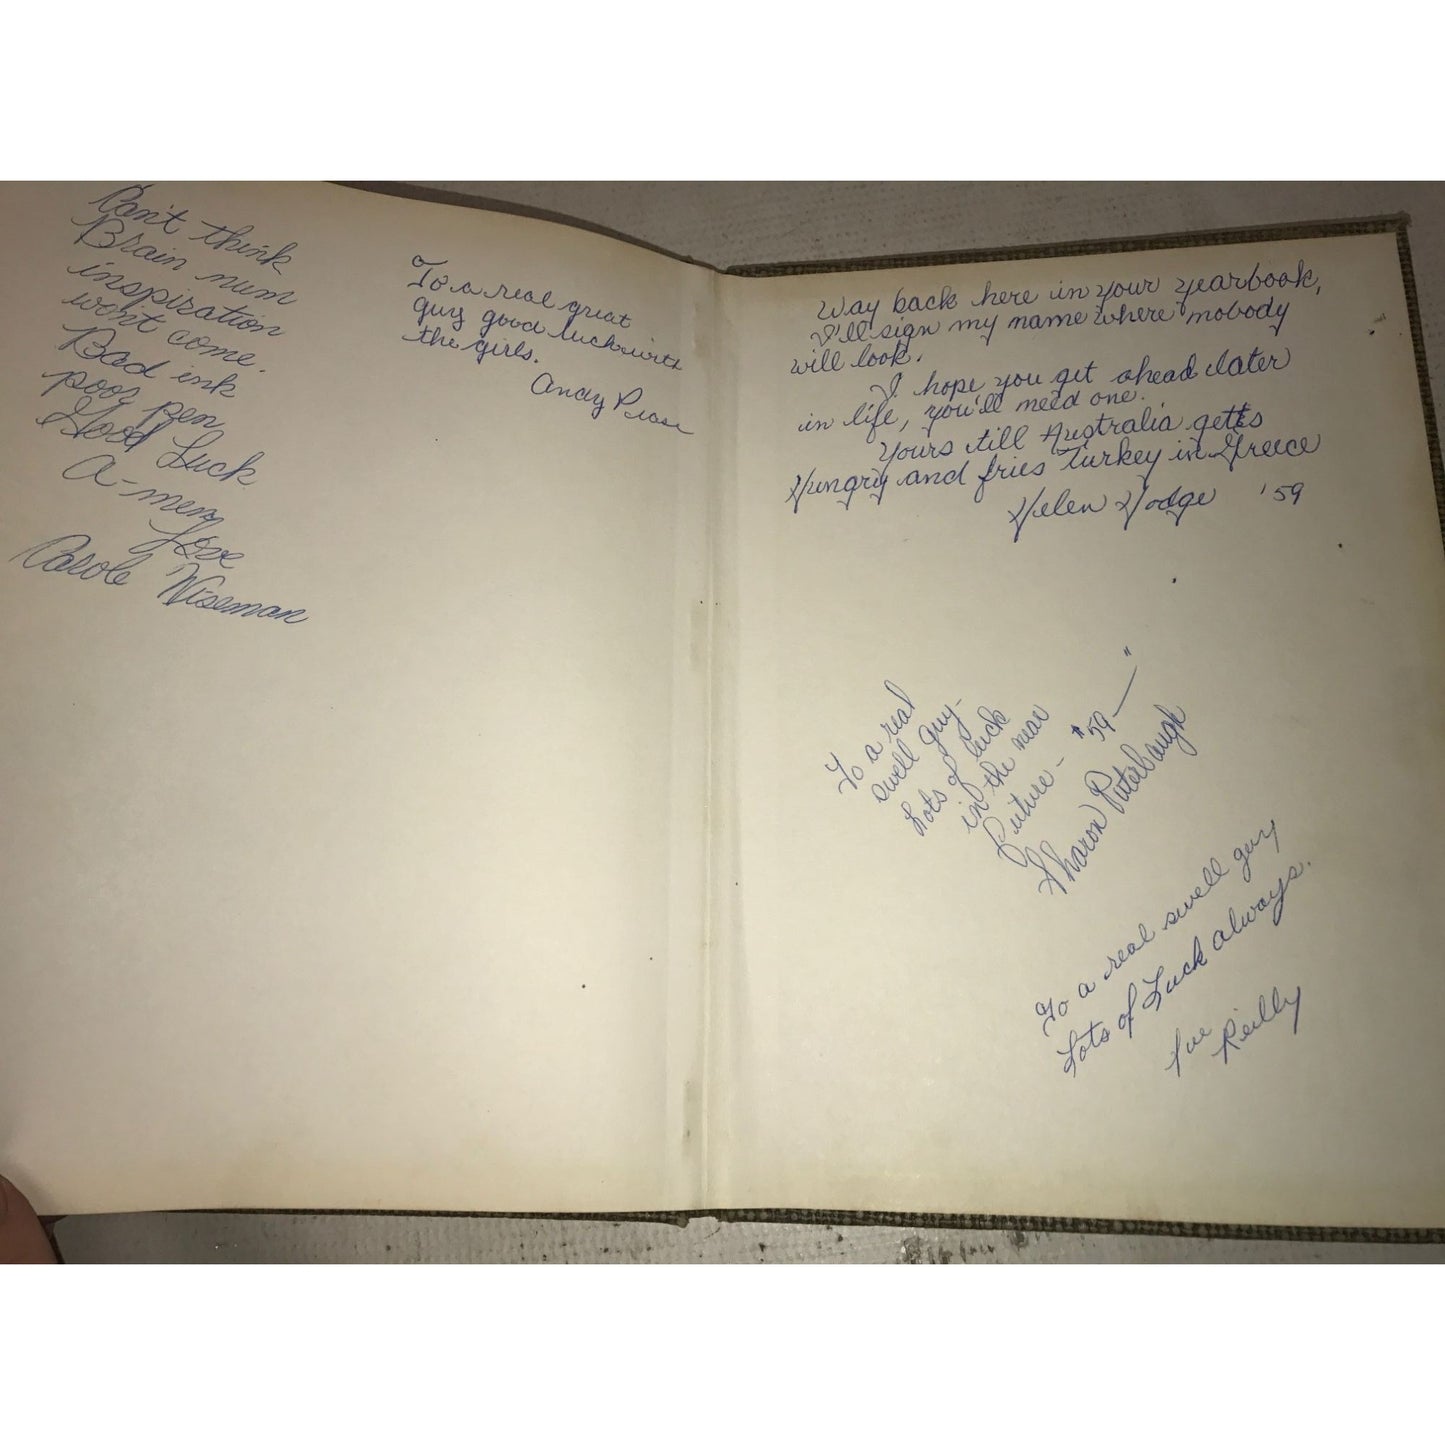 Can't think
Brain num
inspiration
won't come.
Bad ink
poor pen
Good Luck
A-men
Love
Carole Wiseman
To a real great
guy good luck with
the girls.
Andy Pease
Way back here in your yearbook,
I'll sign my name where nobody
will look.
I hope you get ahead later
in life, you'll need one.
Yours till Australia gets
Hungry and fries Turkey in Greece
Helen Hodge '59
To a real
swell guy-
Lots of luck
in the near
future- "59—"
Sharon Puterbaugh
To a real swell guy
Lots of Luck always.
Sue
Reilly